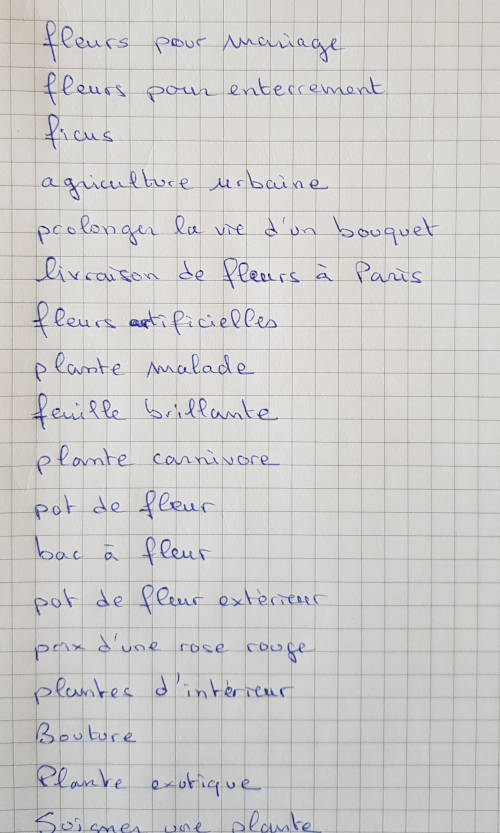 fleurs pour mariage
fleurs pour enterrement
ficus
agriculture urbaine
prolonger la vie d'un bouquet
livraison de fleurs à Paris
fleurs artificielles
plante malade
feuille brillante
plante carnivore
pot de fleur
bac à fleur
pot de fleur extérieur
prix d'une rose rouge
plantes d'intérieur
Bouture
Plante exotique
Soigner une plante